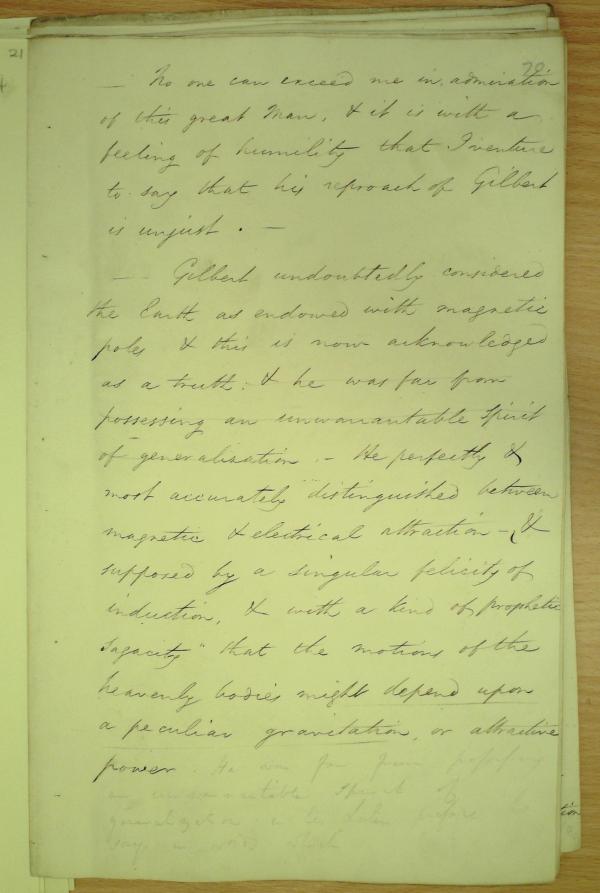 79.
— No one can exceed me in admiration
of this great Man. & it is with a
feeling of humility that I venture
to say that his reproach of Gilbert
is unjust. —
— Gilbert undoubtedly considered
the Earth as endowed with magnetic
poles & this is now acknowledged
as a truth: & he was far from
possessing an unwarrantable spirit
of generalization. - He perfectly &
most accurately distinguished between
magnetic & electrical attraction - &
supposed by a singular felicity of
induction, & with a kind of prophetic
sagacity" that the motions of the
heavenly bodies might depend upon
a peculiar gravitation, or attractive
power. He was far from possessing
an unwarrantable spirit of
generalization
say
21
tion